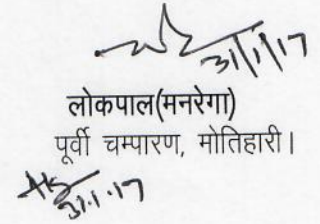 31/1/17
लोकपाल(मनरेगा)
पूर्वी चम्पारण, मोतिहारी।
31.1.17